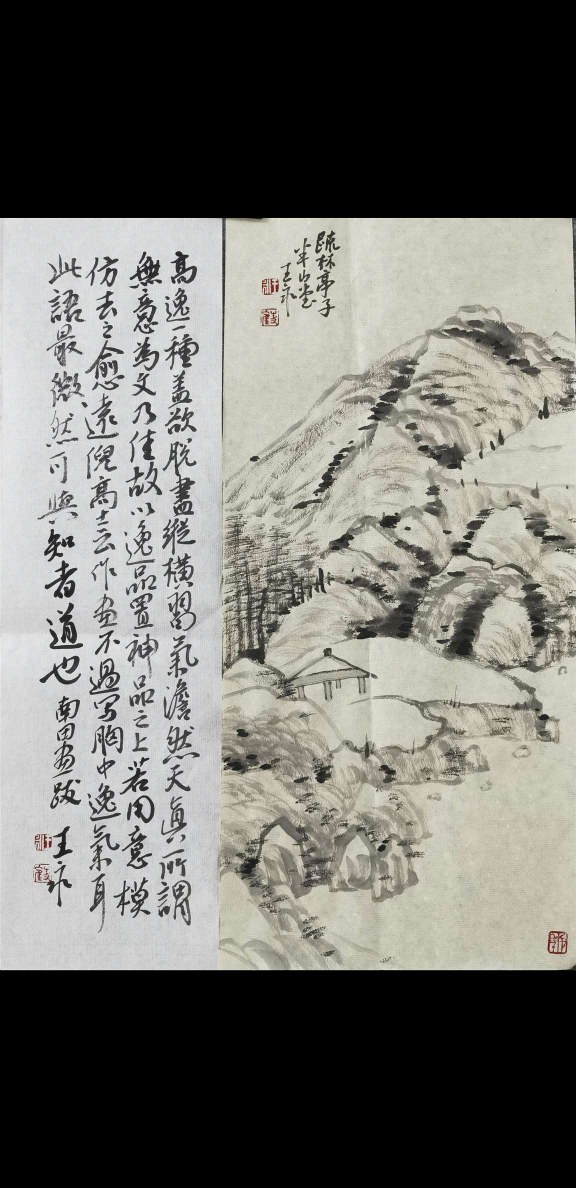 高逸一種蓋欲脫盡縱橫習氣澹然天真所謂
無意為文乃佳故以逸品置神品之上若用意模
仿去之愈遠倪高士云作畫不過写胸中逸氣耳
此語最微然可與知者道也 南田畫跋 王亦
疏林亭子
半山堂
王亦